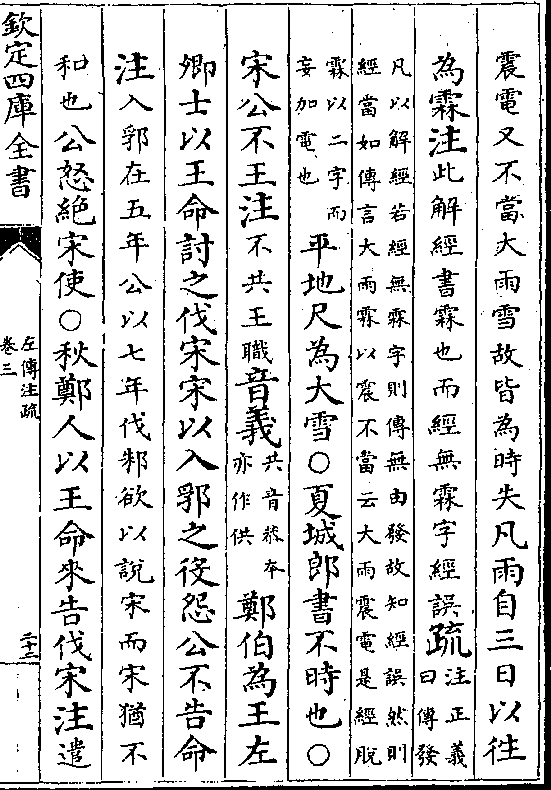 震電又不當大雨雪故皆為時失凡雨自三日以往
為霖注此解經書霖也而經無霖字經誤疏注正義
曰傳發
凡以解經若經無霖字則傳無由發故知經誤然則
經當如傳言大雨霖以震不當云大雨震電是經脫
霖以二字而
妄加電也
平地尺為大雪○夏城郎書不時也○
宋公不王注不共王職音義共音恭本
亦作供
鄭伯為王左
卿士以王命討之伐宋宋以入郛之役怨公不告命
注入郛在五年公以七年伐邾欲以說宋而宋猶不
和也公怒絶宋使○秋鄭人以王命來告伐宋注遣
欽定四庫全書
左傳注疏
卷三
二十二